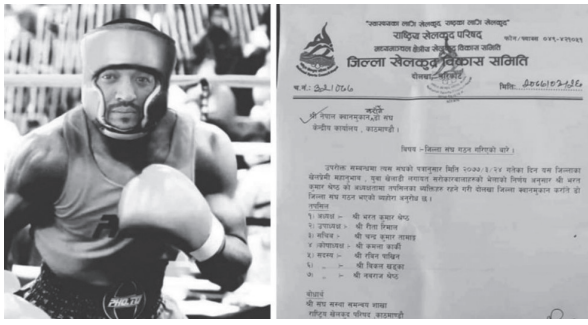 "स्वास्थ्यका लागि खेलकूद, राष्ट्रका लागि खेलकूद"
राष्ट्रिय खेलकूद परिषद्
फोन/फ्याक्स ०४९-४२१०७१
मध्यमाञ्चल क्षेत्रीय खेलकूद विकास समिति
जिल्ला खेलकूद विकास समिति
दोलखा, चरिकोट
च.नं.:
मिति:
श्री नेपाल क्यानमुकान डो संघ
केन्द्रीय कार्यालय, काठमाण्डौ ।
विषय :- जिल्ला संघ गठन गरिएको बारे ।
उपरोक्त सम्बन्धमा त्यस संघको पत्रानुसार मिति गतेका दिन यस जिल्लाका
खेलप्रेमी महानुभाव, युवा खेलाडी लगायत सरोकारवालाहरुको भेलाको निर्णय अनुसार श्री भरत
कुमार श्रेष्ठ को अध्यक्षतामा तपसिलका व्यक्तिहरु रहने गरी दोलखा जिल्ला क्यानमुकान करांते डो
जिल्ला संघ गठन भएको व्यहोरा अनुरोध छ ।
तपसिल
१) अध्यक्ष :- श्री भरत कुमार श्रेष्ठ
२) उपाध्यक्ष :- श्री रीता रिमाल
३) सचिव :- श्री चन्द्र कुमार तामाङ
४) कोषाध्यक्ष :- श्री कमला कार्की
५) सदस्य :- श्री रविन पाख्रिन
६) ,, :- श्री विकल खड्का
७) ,, :- श्री नवराज श्रेष्ठ
बोधार्थ
श्री संघ सस्था समन्वय शाखा
राष्ट्रिय खेलकूद परिषद, काठमाण्डौ